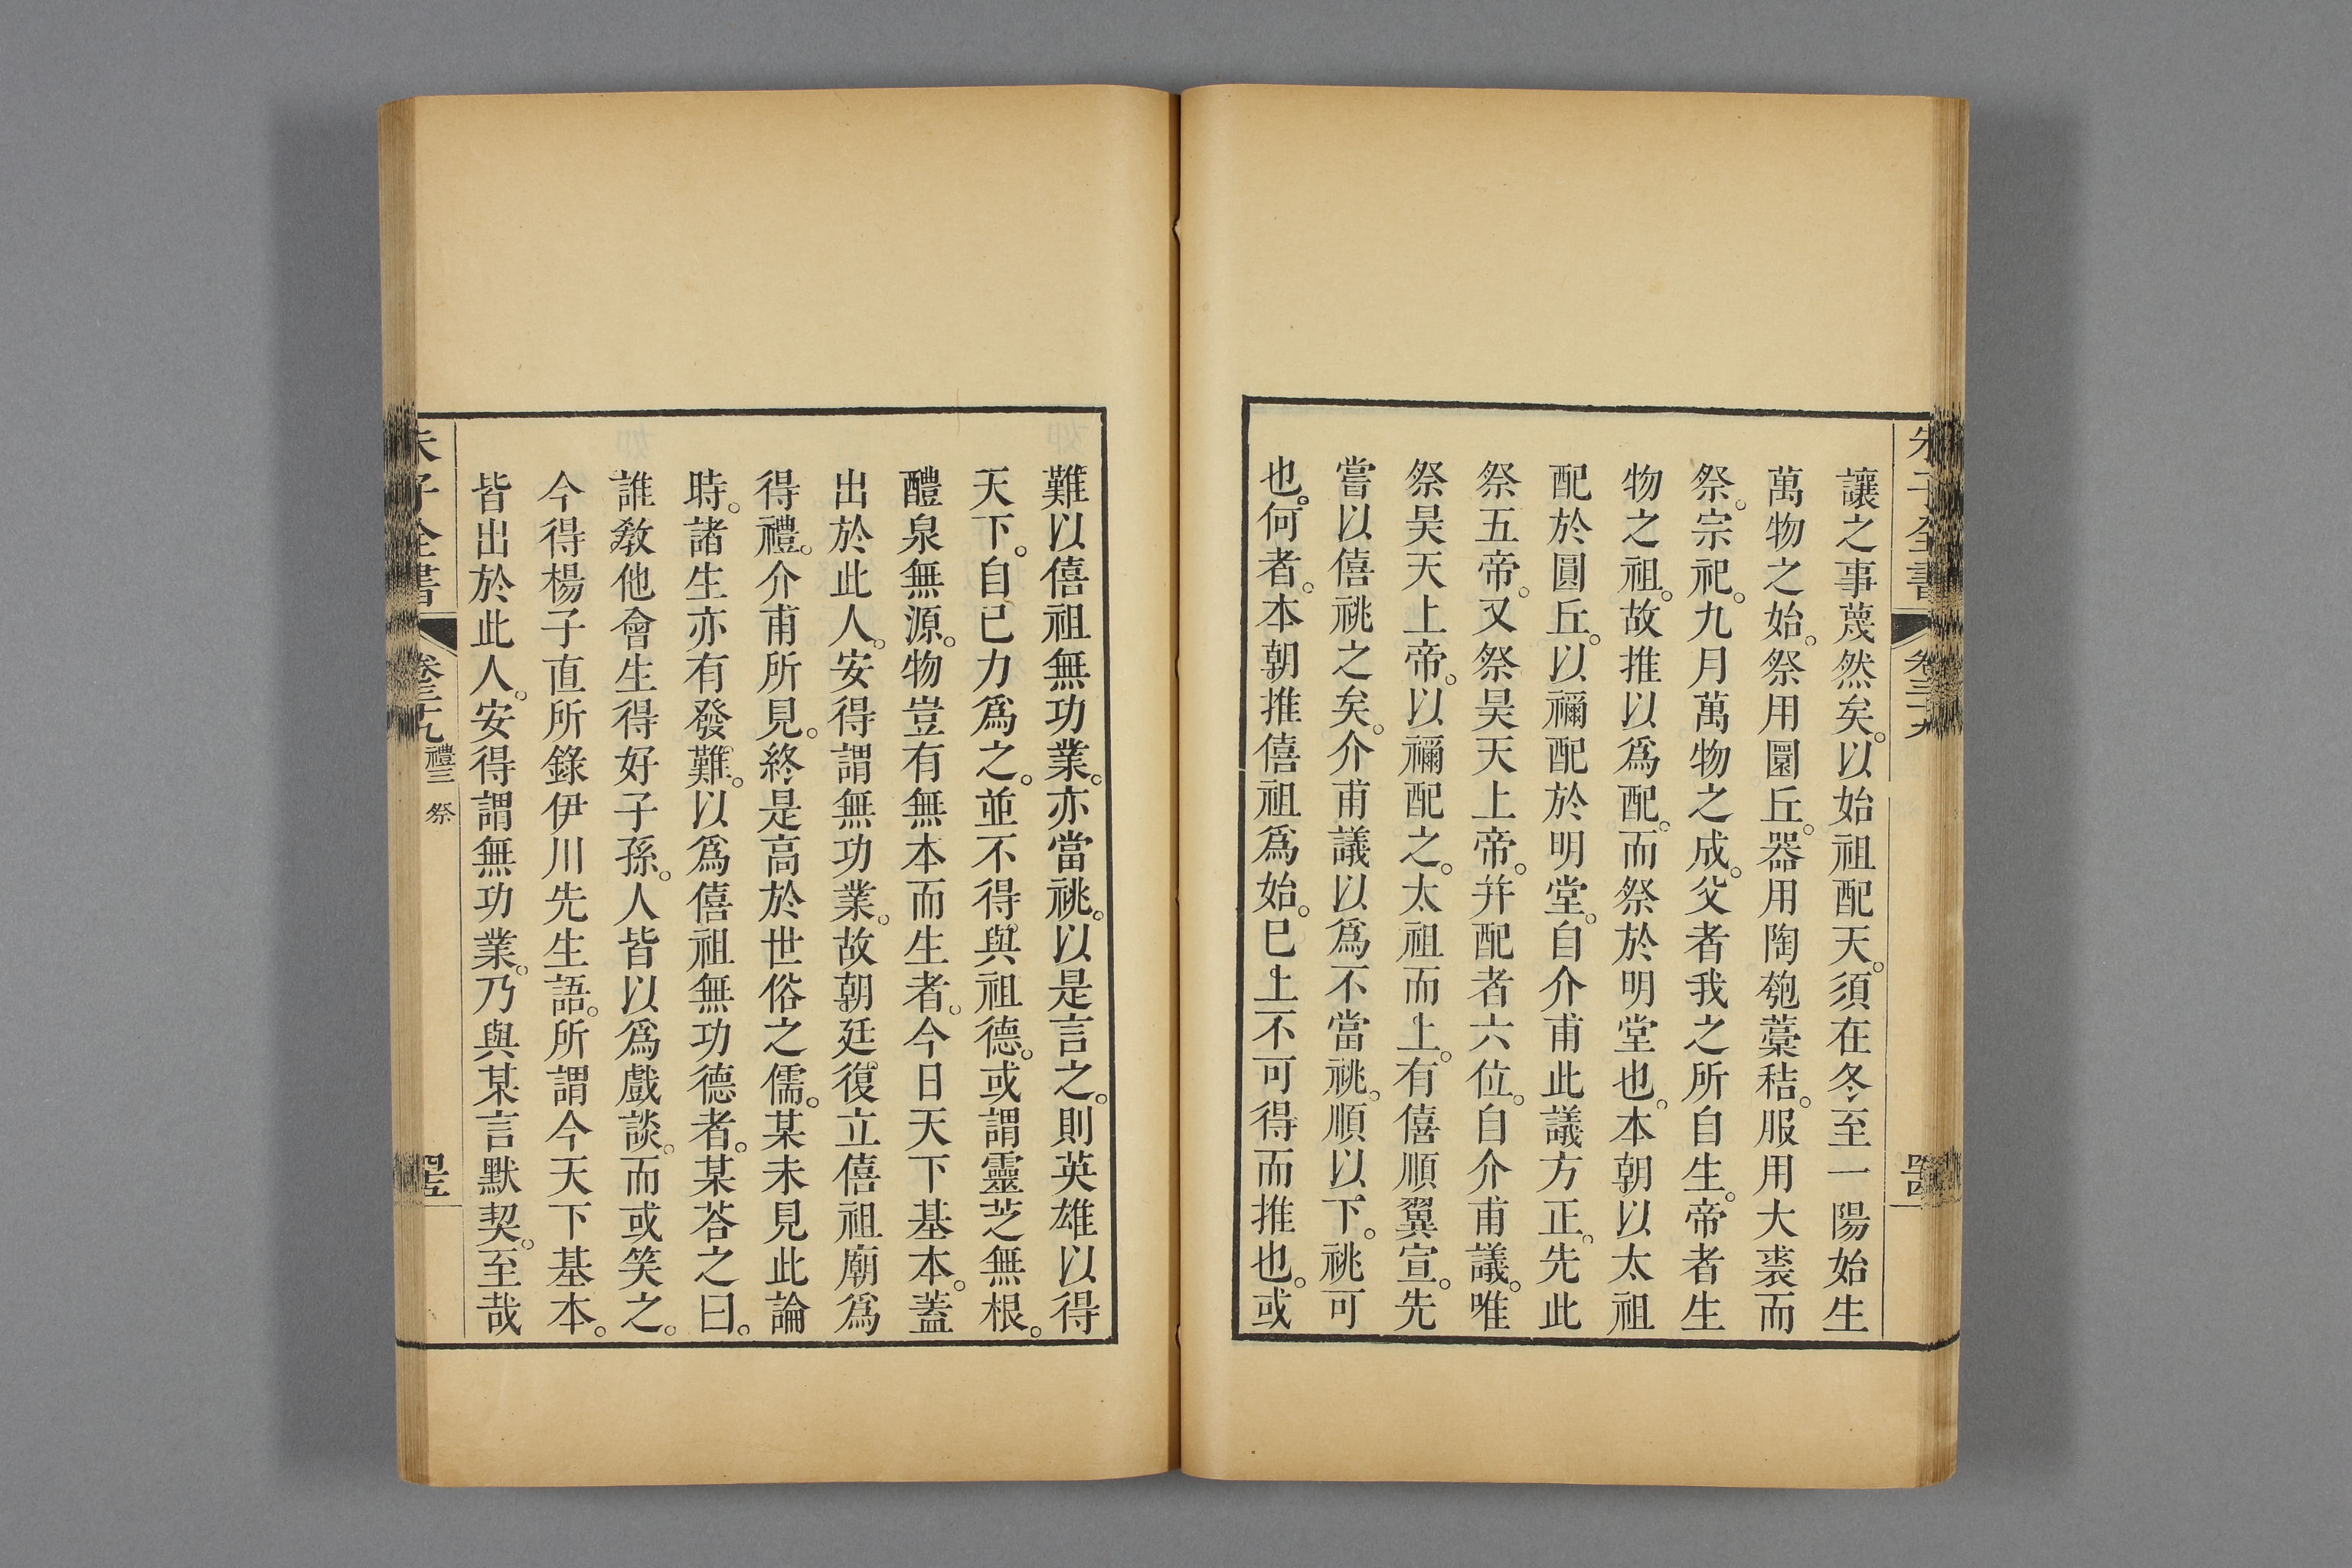 朱子全書 卷三十九
讓之事蔑然矣。以始祖配天。須在冬至一陽始生
萬物之始。祭用圜丘。器用陶匏藁秸。服用大裘而
祭。宗祀。九月萬物之成。父者我之所自生。帝者生
物之祖。故推以爲配。而祭於明堂也。本朝以太祖
配於圓丘。以禰配於明堂。自介甫此議方正。先此
祭五帝。又祭昊天上帝。并配者六位。自介甫議。唯
祭昊天上帝。以禰配之。太祖而上。有僖順翼宣。先
嘗以僖祧之矣。介甫議以爲不當祧。順以下。祧可
也。何者。本朝推僖祖爲始。已上不可得而推也。或
難以僖祖無功業。亦當祧。以是言之。則英雄以得
天下。自已力爲之。並不得。與祖德。或謂靈芝無根。
醴泉無源。物豈有無本而生者。今日天下基本。蓋
出於此人。安得謂無功業。故朝廷。復立僖祖廟爲
得禮。介甫所見。終是高於世俗之儒。某未見此論
時。諸生亦有發難。以爲僖祖無功德者。某荅之曰。
誰敎他會生得好子孫。人皆以爲戲談。而或笑之。
今得楊子直所錄伊川先生語。所謂今天下基本。
皆出於此人。安得謂無功業。乃與某言默契。至哉
朱子全書 卷三十九 禮三 祭 罣